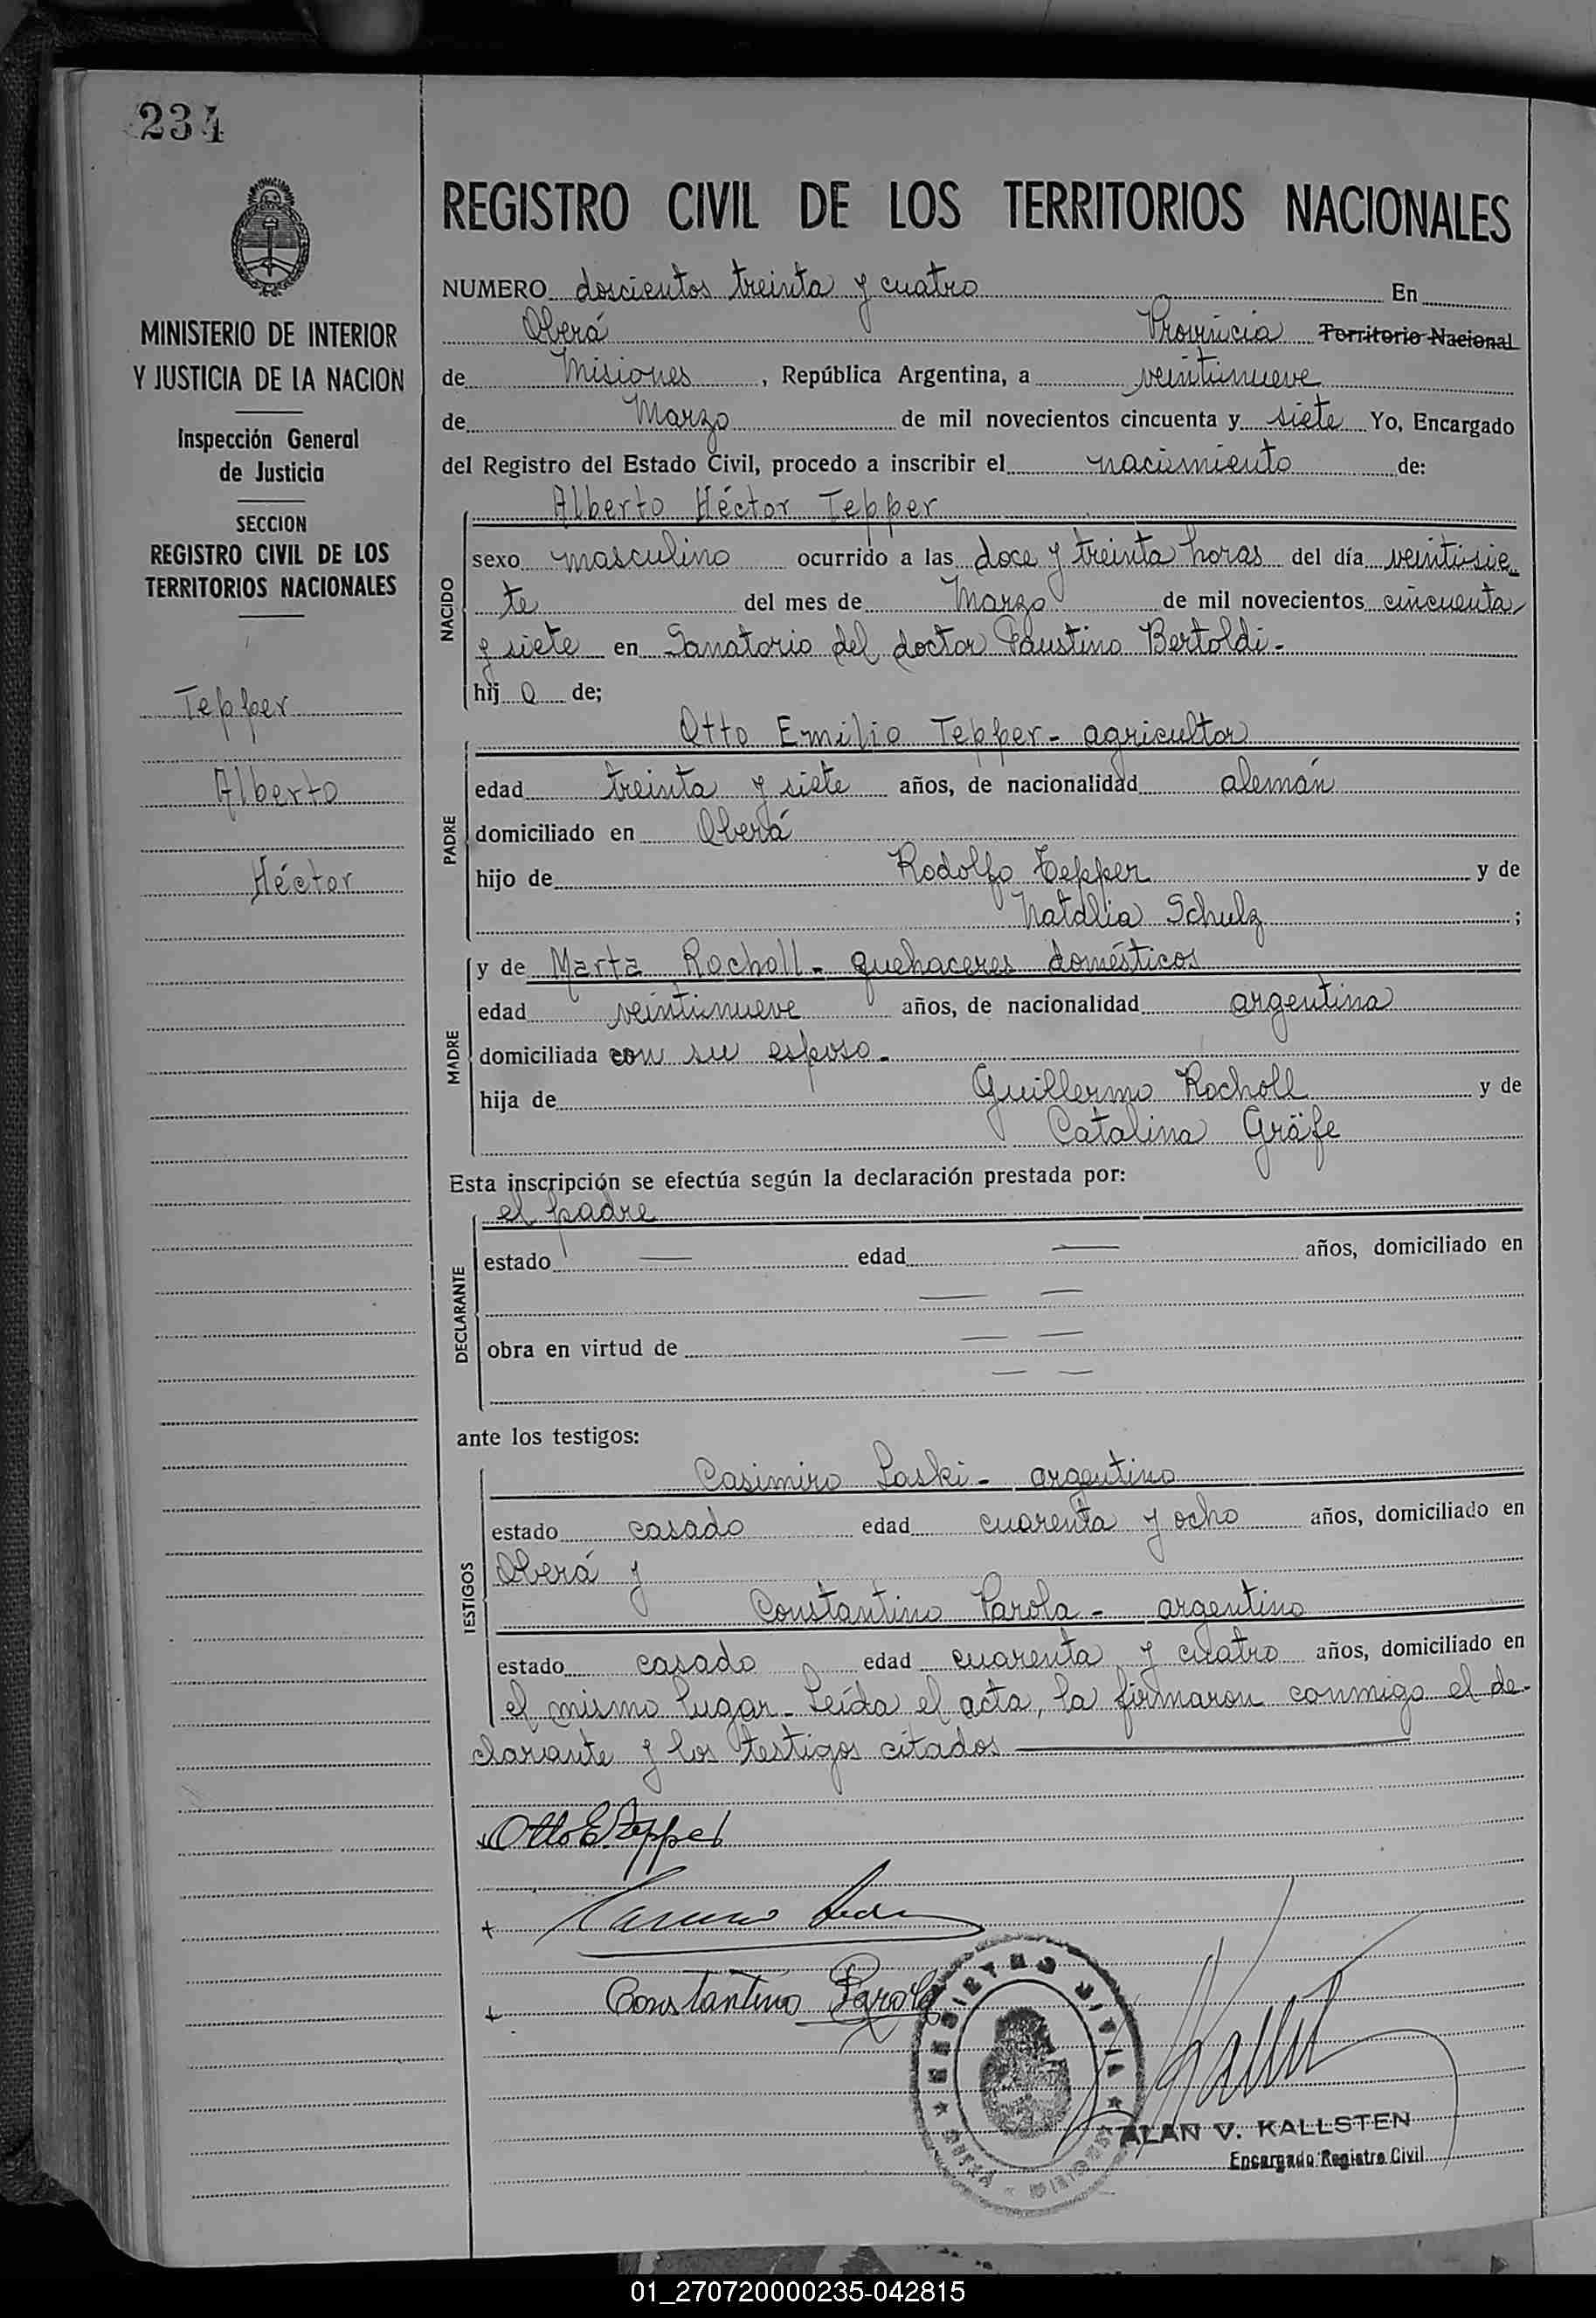 234
MINISTERIO DE INTERIOR
Y JUSTICIA DE LA NACION
Inspección General
de Justicia
SECCION
REGISTRO CIVIL DE LOS
TERRITORIOS NACIONALES
Tepper
Alberto
Héctor
REGISTRO CIVIL DE LOS TERRITORIOS NACIONALES
NUMERO doscientos treinta y cuatro En
Oberá Provincia Territorio Nacional
de Misiones, República Argentina, a veintinueve
de Marzo de mil novecientos cincuenta y siete Yo, Encargado
del Registro del Estado Civil, procedo a inscribir el nacimiento de:
Alberto Héctor Tepper
NACIDO
sexo masculino ocurrido a las doce y treinta horas del día veintisie-
te del mes de Marzo de mil novecientos cincuenta
y siete en Sanatorio del doctor Faustino Bertoldi.-
hij o de;
PADRE
Otto Emilio Tepper - agricultor
edad treinta y siete años, de nacionalidad alemán
domiciliado en Oberá
hijo de Rodolfo Tepper y de
Natalia Schulz ;
MADRE
y de Marta Rocholl - quehaceres domésticos
edad veintinueve años, de nacionalidad argentina
domiciliada con su esposo.-
hija de Guillermo Rocholl y de
Catalina Gräfe
Esta inscripción se efectúa según la declaración prestada por:
el padre
DECLARANTE
estado — edad — años, domiciliado en
— —
obra en virtud de — —
— —
ante los testigos:
TESTIGOS
Casimiro Laski - argentino
estado casado edad cuarenta y ocho años, domiciliado en
Oberá y
Constantino Parola - argentino
estado casado edad cuarenta y cuatro años, domiciliado en
el mismo lugar - Leída el acta, la firmaron conmigo el de-
clarante y los testigos citados
Otto E Tepper
Constantino Parola
REGISTRO CIVIL
ALAN V. KALLSTEN
Encargado Registro Civil
01_270720000235-042815